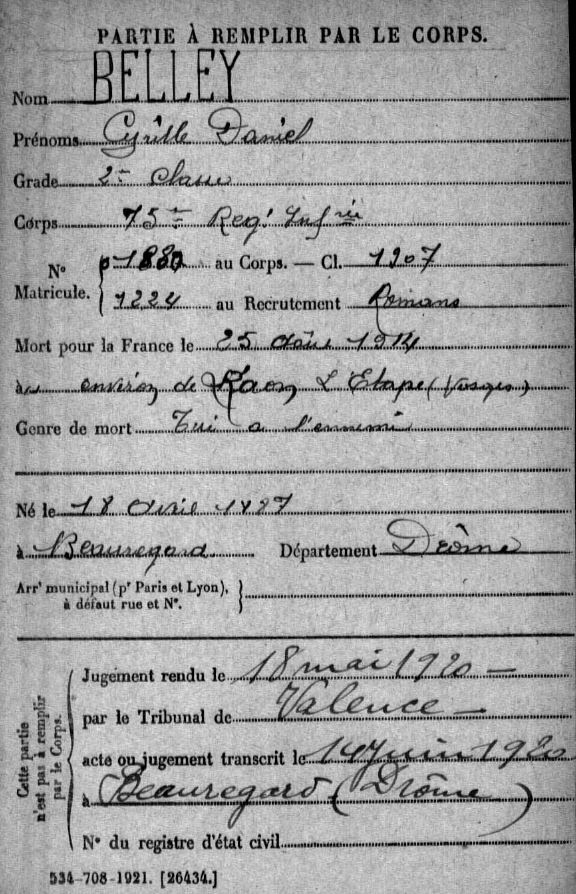 PARTIE À REMPLIR PAR LE CORPS.
Nom BELLEY
Prénoms Cyrille Daniel
Grade 2e classe
Corps 75e Reg.t Infrie
N° Matricule. { 1880 au Corps. — Cl. 1907
1224 au Recrutement Romans
Mort pour la France le 25 Août 1914
à environ de Raon L'Etape (Vosges)
Genre de mort Tué a l'ennemi
Né le 18 Avril 1887
à Beauregard Département Drôme
Arrt municipal (pr Paris et Lyon),
à défaut rue et N°.
Cette partie n'est pas à remplir par le Corps.
Jugement rendu le 18 mai 1920 —
par le Tribunal de Valence —
acte ou jugement transcrit le 14 juin 1920
à Beauregard (Drôme)
N° du registre d'état civil
534-708-1921. [26434.]